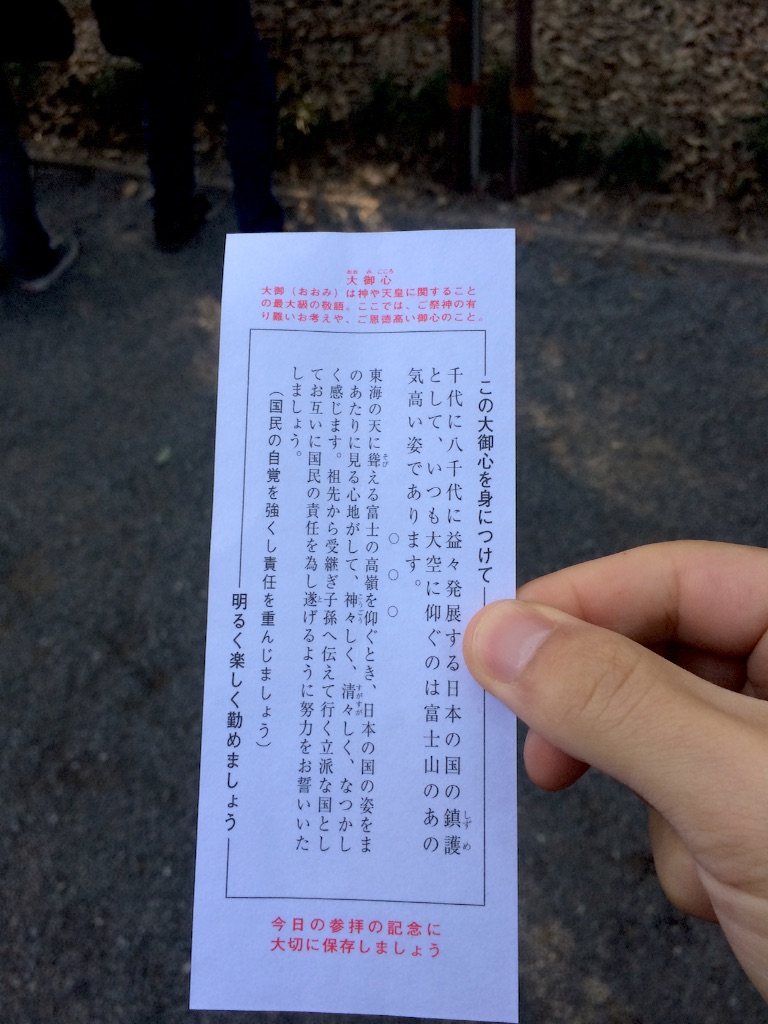 大御心
大御（おおみ）は神や天皇に関すること
の最大級の敬語。ここでは、ご祭神の有
り難いお考えや、ご恩徳高い御心のこと。
この大御心を身につけて
千代に八千代に益々発展する日本の国の鎮護
として、いつも大空に仰ぐのは富士山のあの
気高い姿であります。
○○○
東海の天に聳える富士の高嶺を仰ぐとき、日本の国の姿をま
のあたりに見る心地がして、神々しく、清々しく、なつかし
く感じます。祖先から受継ぎ子孫へ伝えて行く立派な国とし
てお互いに国民の責任を為し遂げるように努力をお誓いいた
しましょう。
（国民の自覚を強くし責任を重んじましょう）
明るく楽しく勤めましょう
今日の参拝の記念に
大切に保存しましょう